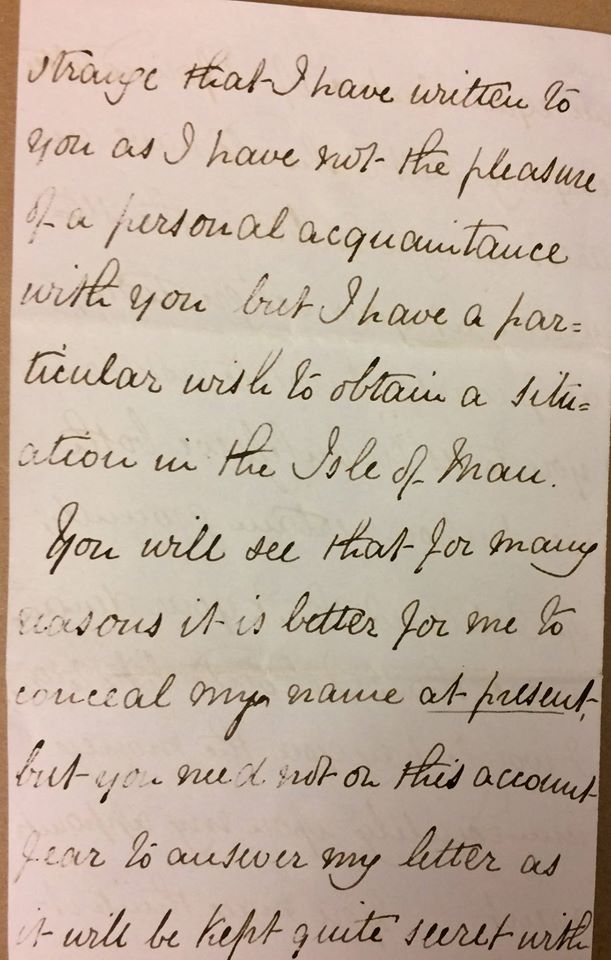 strange that I have written to
you as I have not the pleasure
of a personal acquaintance
with you but I have a par=
ticular wish to obtain a situ=
ation in the Isle of Man.
You will see that for many
reasons it is better for me to
conceal my name at present,
but you need not on this account
fear to answer my letter as
it will be kept quite secret with